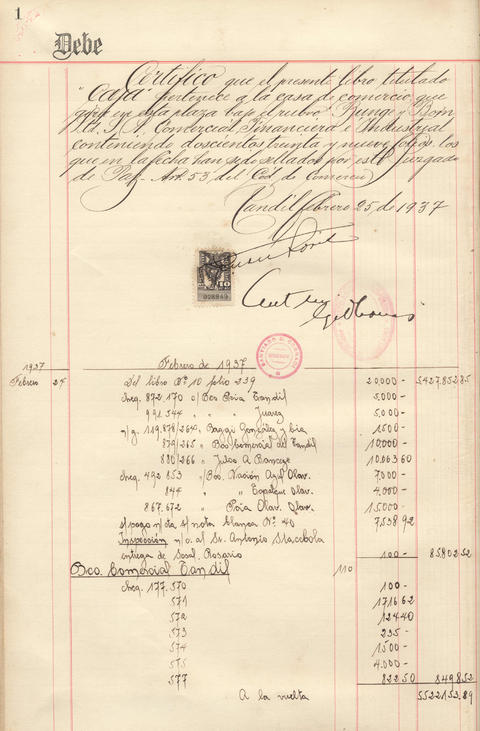 1
Debe
Certifico que el presente libro titulado
"Caja" pertenece a la casa de comercio que
gira en esta plaza bajo el rubro "Bunge y Born
Ltd. S. A. Comercial, Financiera e Industrial
conteniendo doscientos treinta y nueve folios, los
que en la fecha han sido sellados por este Juzgado
de Paz. Art. 53 del Cód. de Comercio
Tandil, febrero 25 de 1937
10
028849
1937 Febrero de 1937
Febrero 24 Del libro Nº 10 folio 239 20.000- 5.427.852.85
cheq. 872.170 c/ Bco Pcia Tandil 5.000-
991.544 " " Juarez 5.000-
n/g. 119.878/264 " Baggi González y Cia 1500-
879/265 " Bco. Comercial de Tandil 10.000-
880/266 " Julio A. 10.063.60
cheq. 492.853 "/ Bco. Nación Azul Olav. 7.000-
844 " " Olav. 4.000-
867.672 " Pcia Olav. Olav. 15.000-
s/ pago n/cta s/ nota blanca Nº 40 7.538.92
Inspección n/o. al Sr. Antonio
entrega de Socal. Rosario 100- 85.802.52
Bco. Comercial Tandil 110
cheq. 177.570 100-
571 1.716.62
572 124.40
573 235-
574 1.500-
575 4.000-
577 822.50 8.498.52
A la vuelta 5.522.153.89